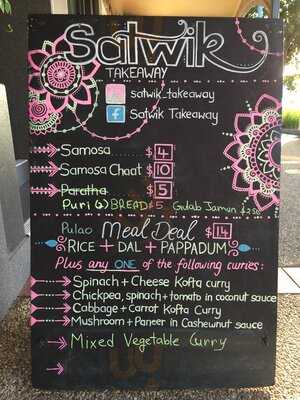 Satwik
TAKEAWAY
satwik_takeaway
f Satwik Takeaway
Samosa $4
Samosa Chaat $10
Paratha $5
Puri (2) BREAD $5 Gulab Jamun $2.50
Pulao Meal Deal $14
RICE + DAL + PAPPADUM
Plus any ONE of the following curries:
Spinach + Cheese Kofta curry
Chickpea, spinach + tomato in coconut sauce
Cabbage + Carrot Kofta Curry
Mushroom + Paneer in Cashewnut sauce
Mixed Vegetable Curry